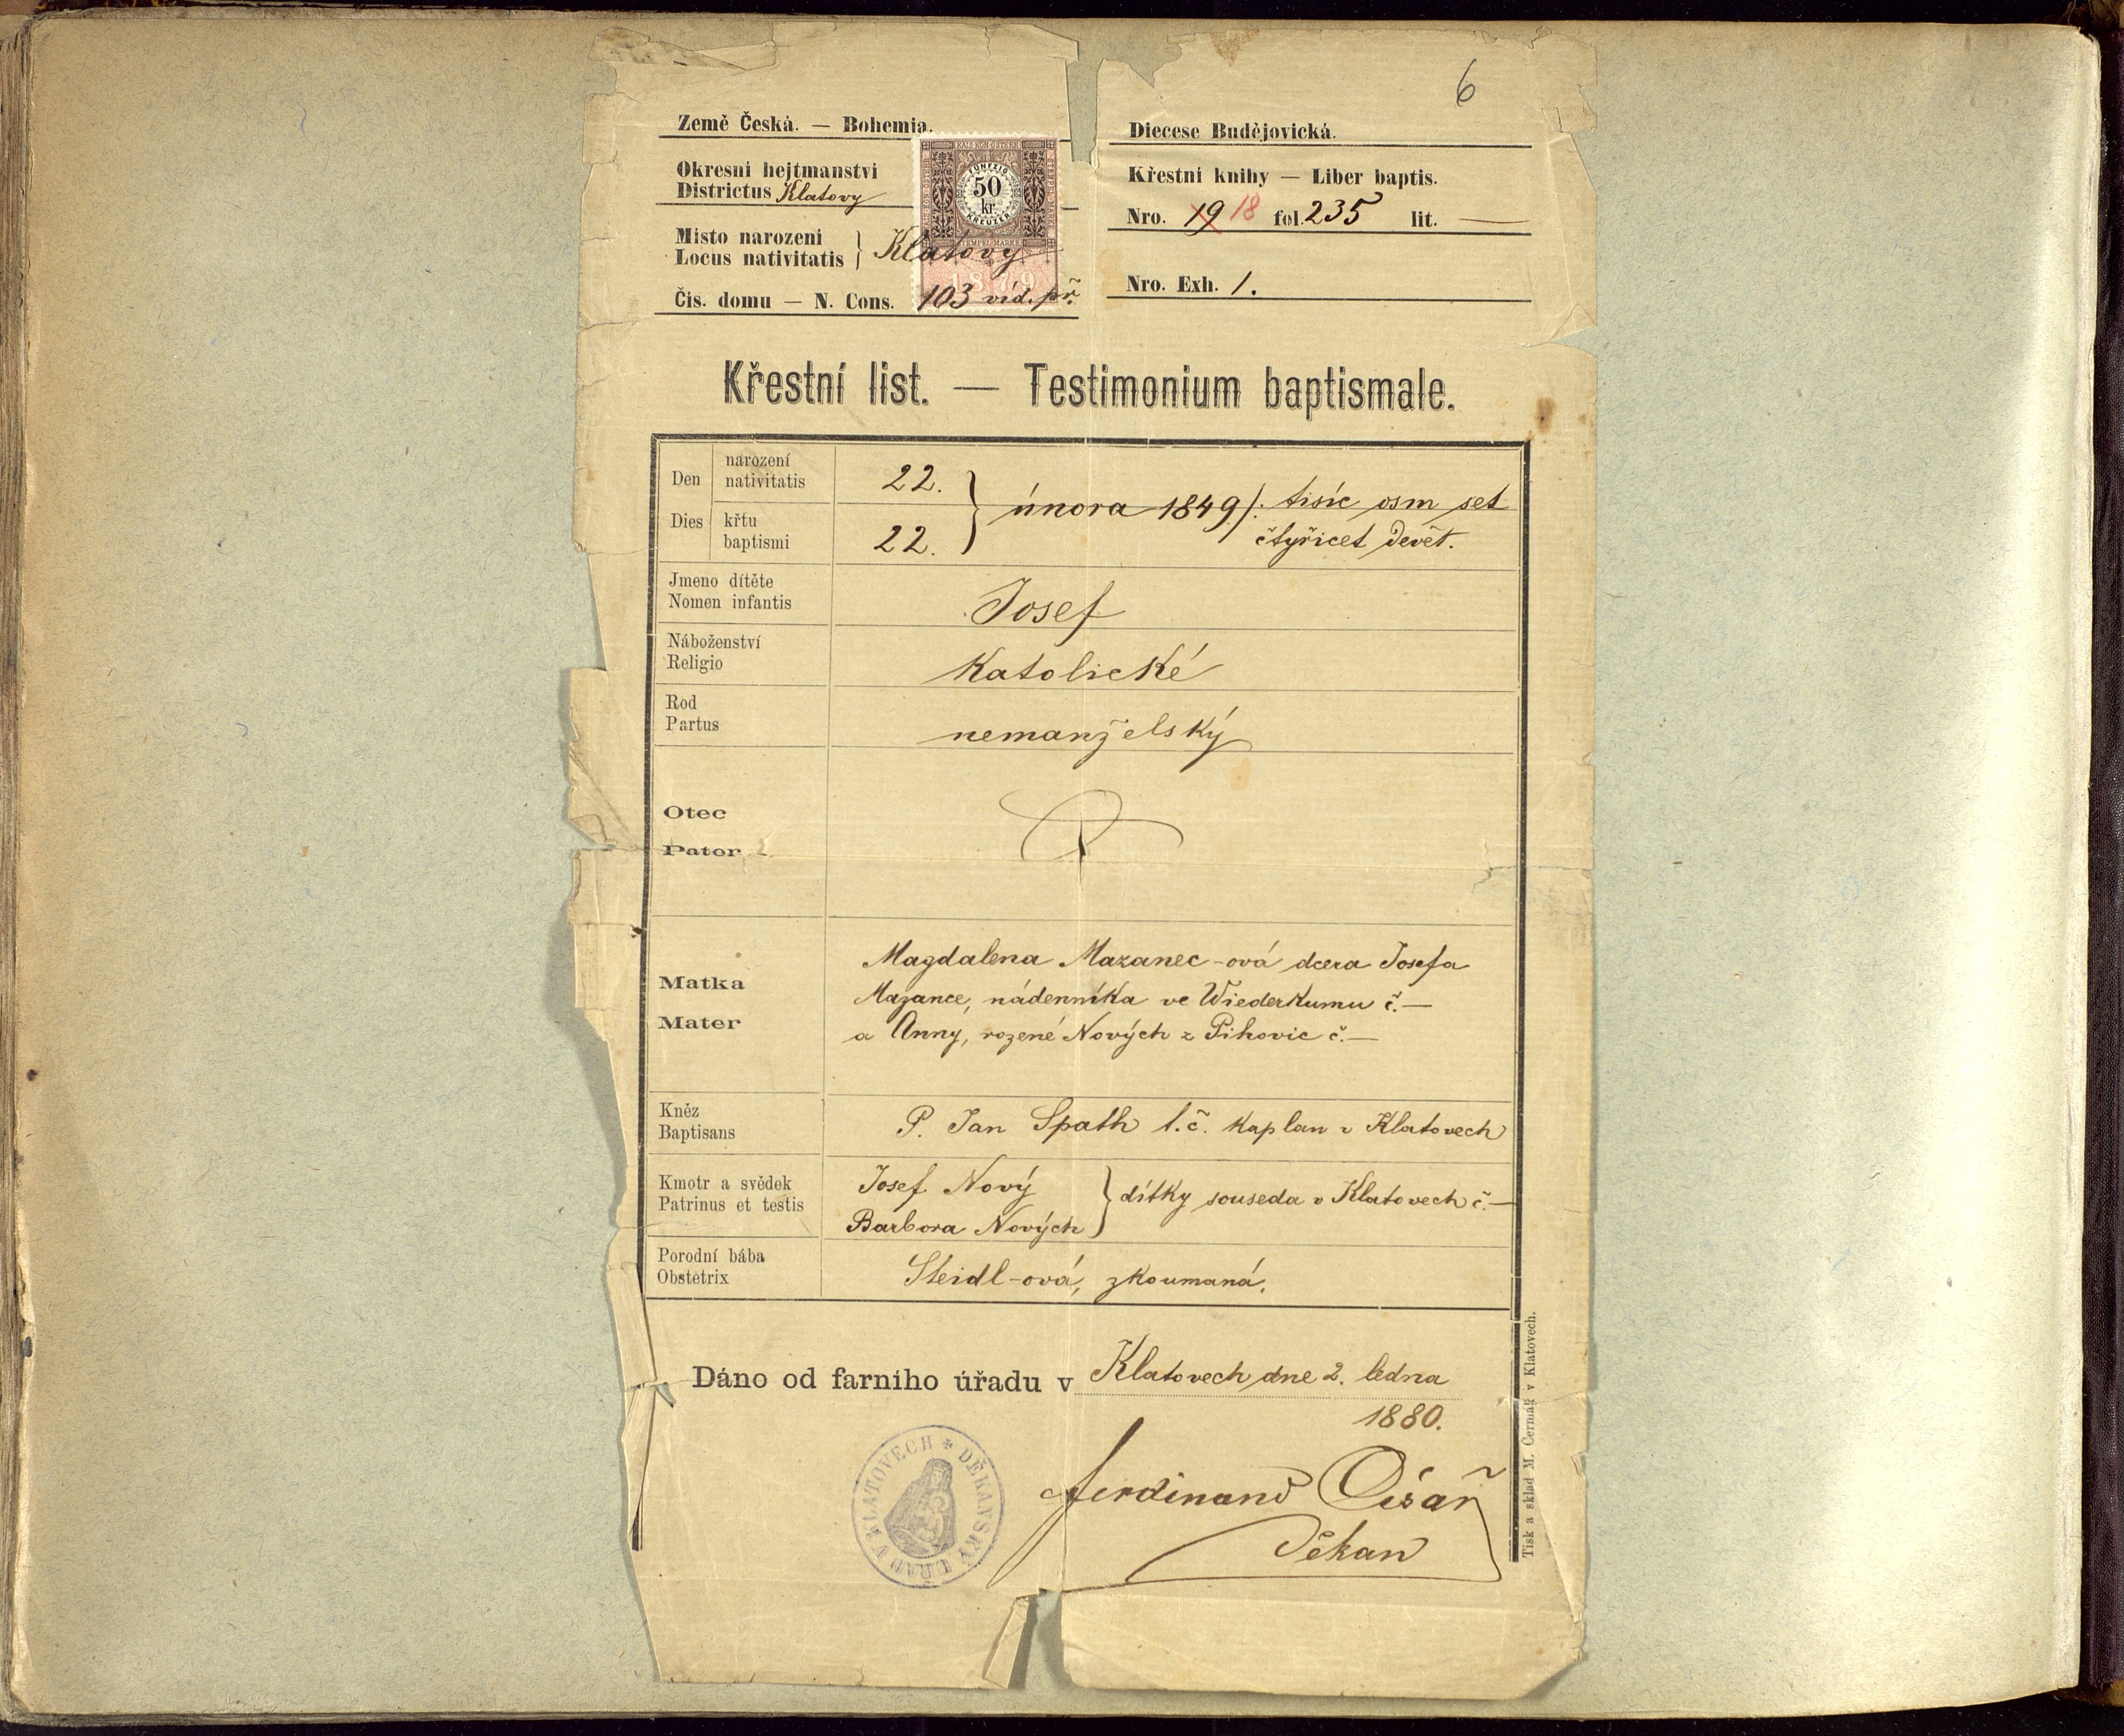 6
Země Česká. — Bohemia.
Okresní hejtmanství
Districtus Klatovy
Místo narození
Locus nativitatis } Klatovy
Čís. domu — N. Cons. 103 víd. př.
FÜNFZIG
50
kr.
KREUZER
1879
Diecese Budějovická.
Křestní knihy — Liber baptis.
Nro. 19 18 fol. 235 lit. —
Nro. Exh. 1.
Křestní list. — Testimonium baptismale.
Den narození
nativitatis 22.
Dies křtu
baptismi 22.
} února 1849 /: tisíc osm set
čtyřicet devět.
Jmeno dítěte
Nomen infantis
Josef
Náboženství
Religio
Katolické
Rod
Partus
nemanželský
Otec
Pater
Matka
Mater
Magdalena Mazanec-ová dcera Josefa
Mazance, nádenníka ve Wiederkumu č. —
a Anny, rozené Nových z Pihovic č. —
Kněz
Baptisans
P. Jan Spath t. č. kaplan v Klatovech
Kmotr a svědek
Patrinus et testis
Josef Nový
Barbora Nových
} dítky souseda v Klatovech č. —
Porodní bába
Obstetrix
Steidl-ová, zkoumaná.
Dáno od farního úřadu v Klatovech dne 2. ledna
1880.
Ferdinand Císař
děkan
DĚKANSKÝ ÚŘAD V KLATOVECH *
Tisk a sklad M. Čermák v Klatovech.